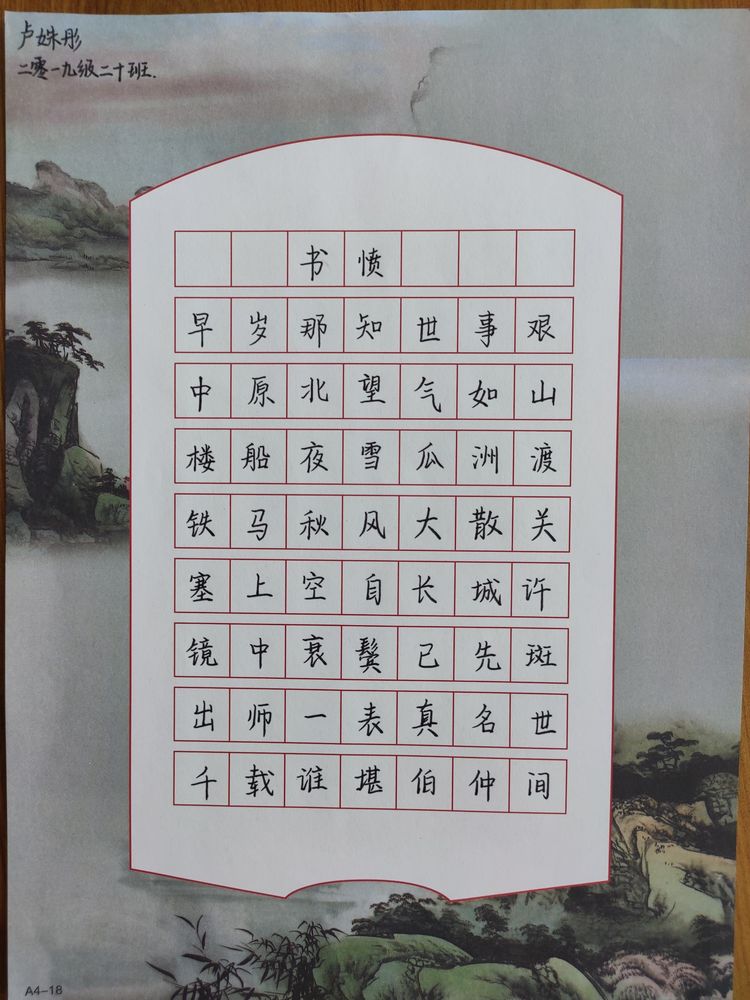 卢姝彤
二零一九级二十班.
书愤
早岁那知世事艰
中原北望气如山
楼船夜雪瓜洲渡
铁马秋风大散关
塞上空自长城许
镜中衰鬓已先斑
出师一表真名世
千载谁堪伯仲间
A4-18